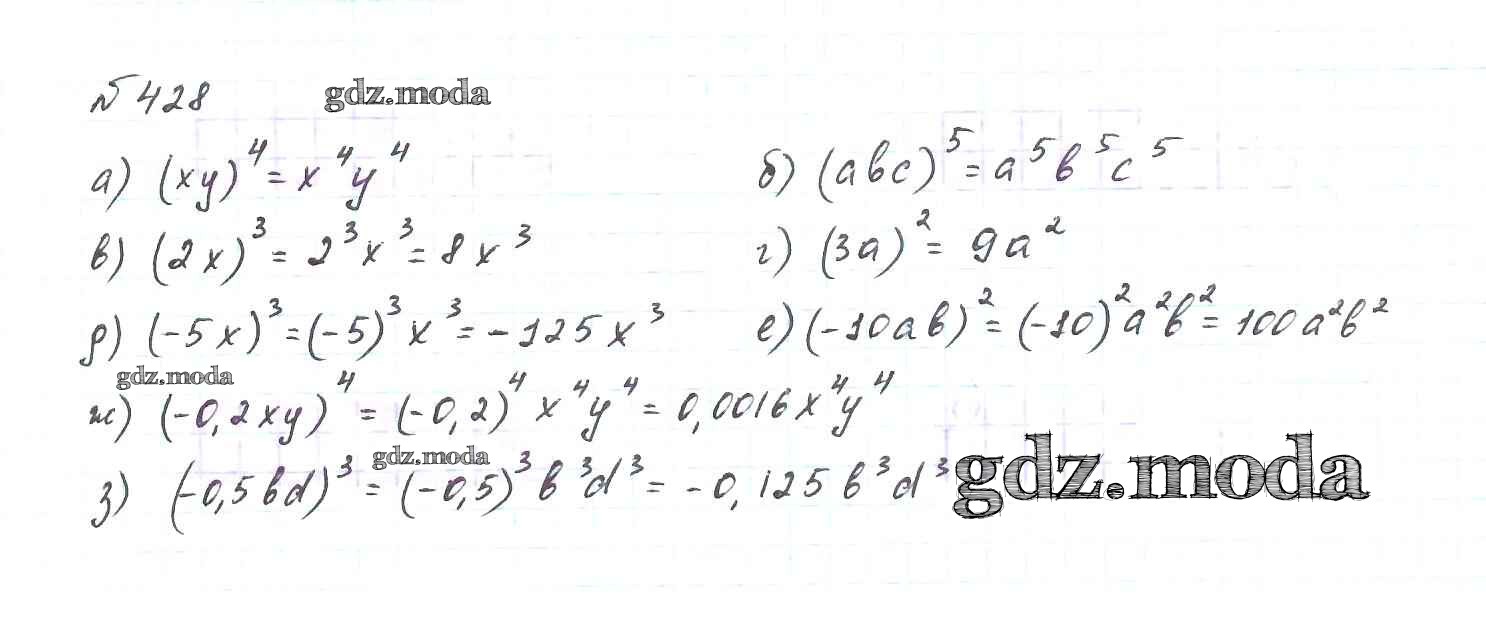 №428 gdz.moda
а) (xy)⁴ = x⁴y⁴ б) (abc)⁵ = a⁵b⁵c⁵
в) (2x)³ = 2³x³ = 8x³ г) (3a)² = 9a²
д) (-5x)³ = (-5)³x³ = -125x³ е) (-10ab)² = (-10)²a²b² = 100a²b²
gdz.moda
ж) (-0,2xy)⁴ = (-0,2)⁴x⁴y⁴ = 0,0016x⁴y⁴
gdz.moda
з) (-0,5bd)³ = (-0,5)³b³d³ = -0,125b³d³
gdz.moda